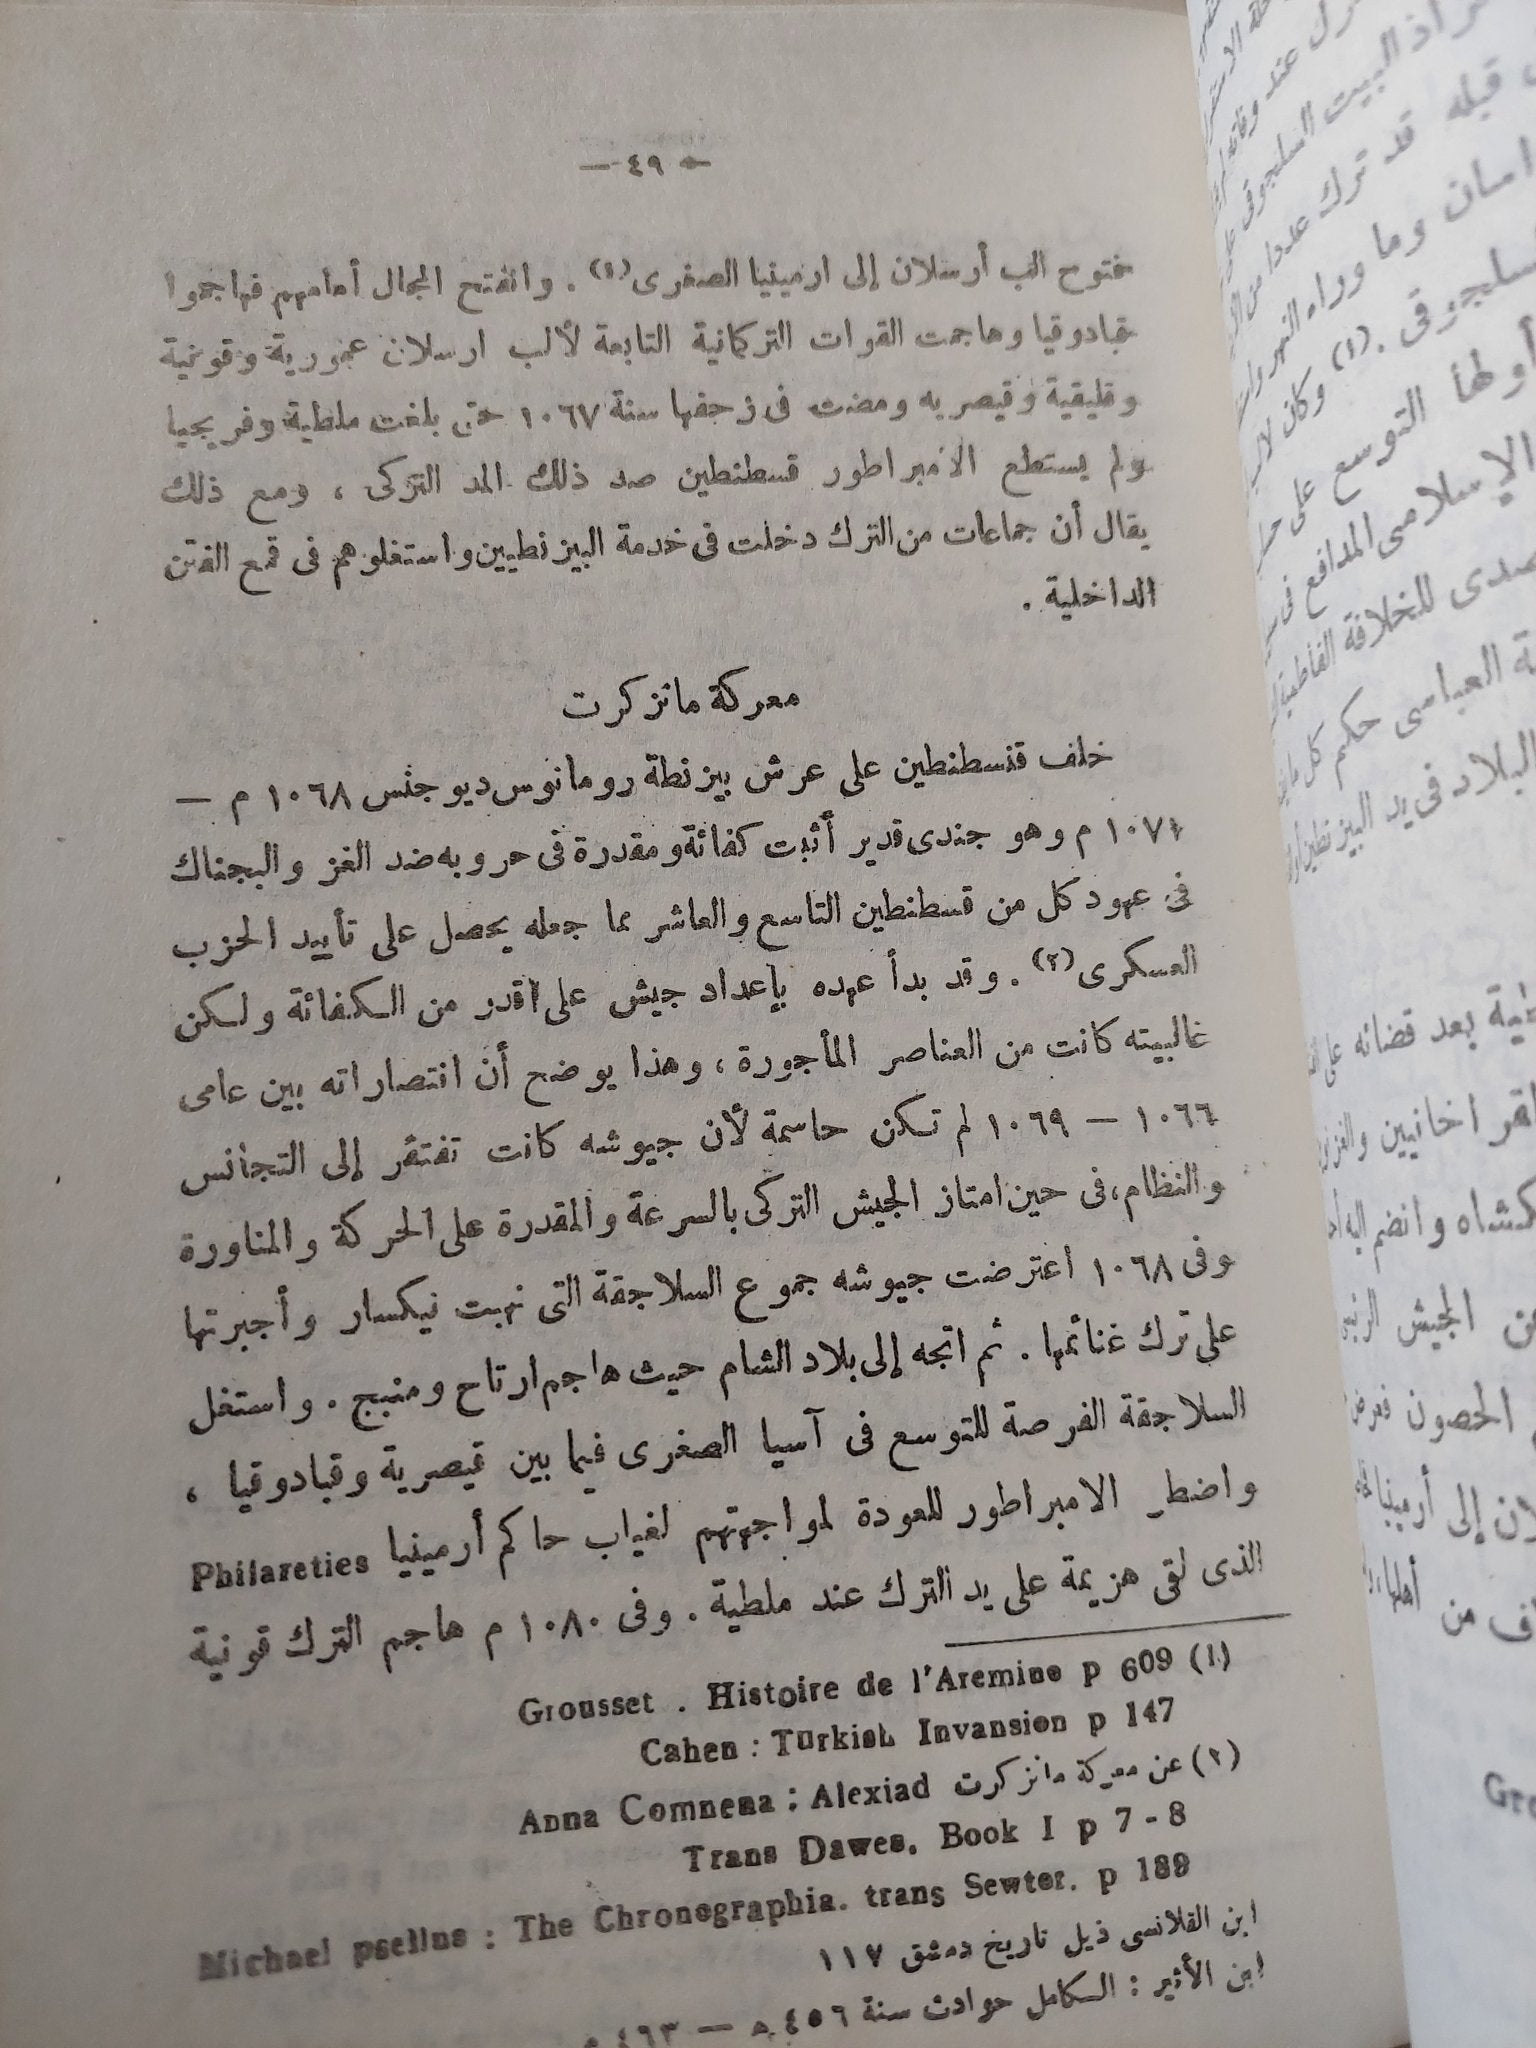 — ٤٩ —
فتوح الب أرسلان إلى ارمينيا الصغرى (١) . وانفتح المجال أمامهم فهاجموا
قبادوقيا وهاجمت القوات التركمانية التابعة لألب ارسلان عمورية وقونية
وقليقية وقيصريه ومضت فى زحفها سنة ١٠٦٧ حتى بلغت ملطية وفريجيا
ولم يستطع الامبراطور قسطنطين صد ذلك المد التركى ، ومع ذلك
يقال أن جماعات من الترك دخلت فى خدمة البيزنطيين واستغلوهم فى قمع الفتن
الداخلية .
معركة مانزكرت
خلف قنسطنطين على عرش بيزنطة رومانوس ديوجنس ١٠٦٨ م —
١٠٧١ م وهو جندى قدير أثبت كفائة ومقدرة فى حروبه ضد الغز والبجناك
فى عهود كل من قسطنطين التاسع والعاشر مما جعله يحصل على تأييد الحزب
العسكرى (٢) . وقد بدأ عهده بإعداد جيش على قدر من الكفائة ولكن
غالبيته كانت من العناصر المأجورة ، وهذا يوضح أن انتصاراته بين عامى
١٠٦٦ — ١٠٦٩ لم تكن حاسمة لأن جيوشه كانت تفتقر إلى التجانس
والنظام، فى حين امتاز الجيش التركى بالسرعة والمقدرة على الحركة والمناورة
وفى ١٠٦٨ اعترضت جيوشه جموع السلاجقة التى نهبت نيكسار وأجبرتها
على ترك غنائمها . ثم اتجه إلى بلاد الشام حيث هاجم ارتاح ومنبج . واستغل
السلاجقة الفرصة للتوسع فى آسيا الصغرى فيما بين قيصرية وقبادوقيا ،
واضطر الامبراطور للعودة لمواجهتهم لغياب حاكم أرمينيا Philareties
الذى لقى هزيمة على يد الترك عند ملطية . وفى ١٠٨٠ م هاجم الترك قونية
(١) Grousset . Histoire de l'Aremine p 609
Cahen : Turkish Invansion p 147
(٢) عن معركة مانزكرت Anna Comnena : Alexiad
Trans Dawes. Book I p 7 - 8
Michael psellus : The Chronographia. trans Sewter. p 189
ابن القلانسى ذيل تاريخ دمشق ١١٧
ابن الأثير : الكامل حوادث سنة ٤٥٦ هـ — ٤٦٣ هـ